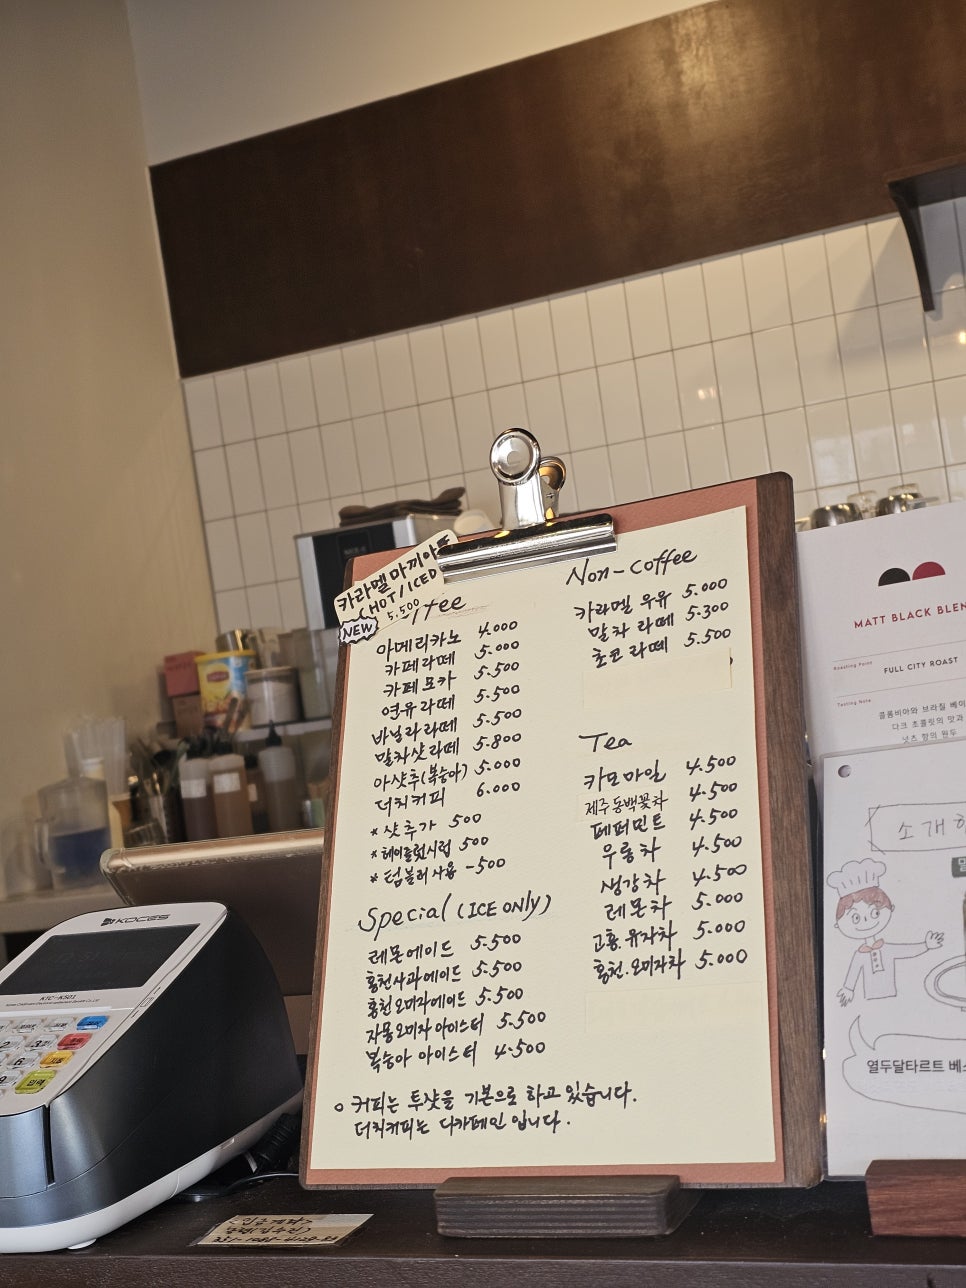 카라멜마끼아또
(HOT/ICED)
5.500
NEW
아메리카노 4.000
카페라떼 5.000
카페모카 5.500
연유라떼 5.500
바닐라라떼 5.500
말차샷라떼 5.800
아샷추(복숭아) 5.000
더치커피 6.000
* 샷추가 500
* 헤이즐넛시럽 500
* 텀블러사용 -500
Special (ICE ONLY)
레몬에이드 5.500
홍천사과에이드 5.500
홍천오미자에이드 5.500
자몽오미자아이스티 5.500
복숭아 아이스티 4.500
Non-coffee
카라멜 우유 5.000
말차 라떼 5.300
초코라떼 5.500
Tea
카모마일 4.500
제주동백꽃차 4.500
페퍼민트 4.500
우롱차 4.500
생강차 4.500
레몬차 5.000
고흥.유자차 5.000
홍천.오미자차 5.000
o 커피는 투샷을 기본으로 하고 있습니다.
더치커피는 디카페인 입니다.
MATT BLACK BLEN
Roasting Point
FULL CITY ROAST
Tasting Note
콜롬비아와 브라질 베이
다크 초콜릿의 맛과
넛츠 향의 원두
소개
열두달타르트 베스
KOCES
KTC-K501